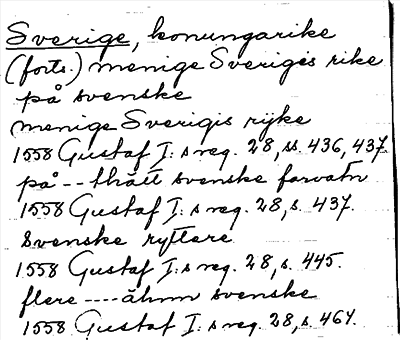 Sverige, konungarike
(forts.) menige Sveriges rike
på svenske
menige Sverigis rijke
1558 Gustaf I:s reg. 28, ss. 436, 437
på -- thätt svenske farvatn
1558 Gustaf I:s reg. 28, s. 437.
svenske ryttere
1558 Gustaf I:s reg. 28, s. 445.
flere ---- ähnn svenske
1558 Gustaf I:s reg. 28, s. 467.